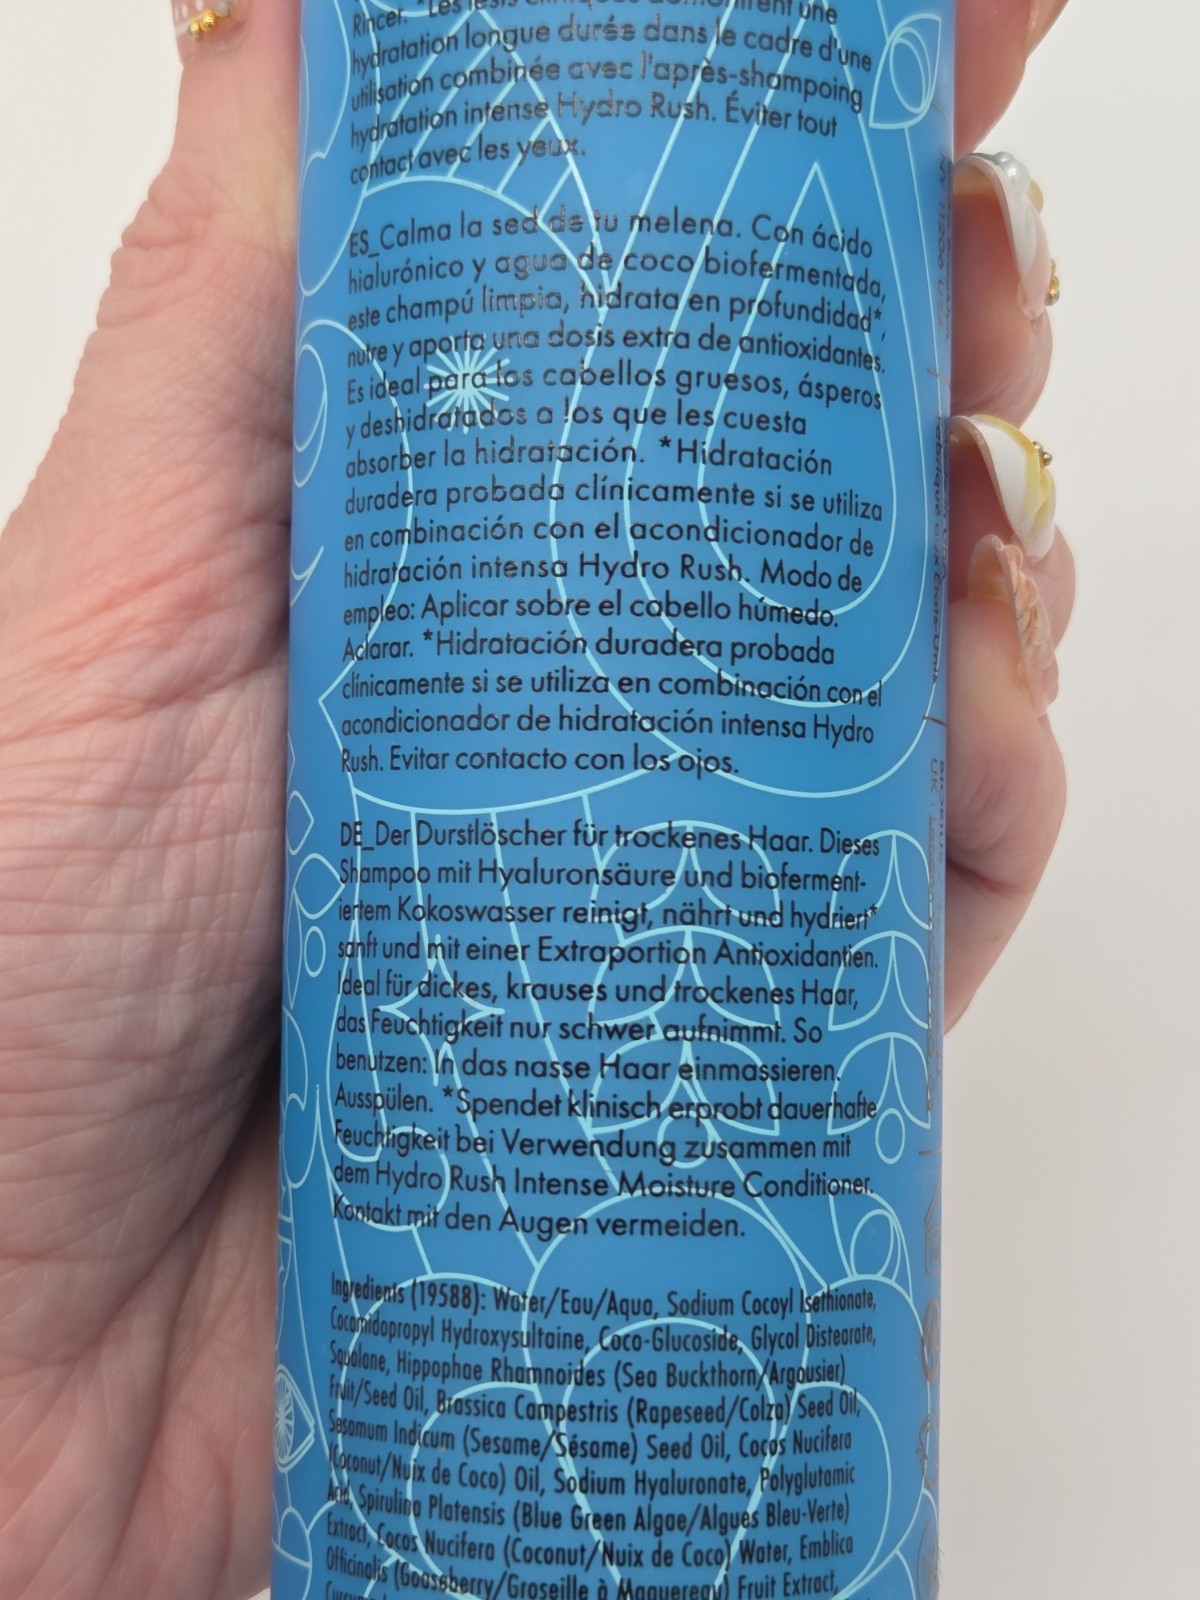 Rincer. *Les tests cliniques démontrent une
hydratation longue durée dans le cadre d'une
utilisation combinée avec l'après-shampoing
hydratation intense Hydro Rush. Éviter tout
contact avec les yeux.
ES_Calma la sed de tu melena. Con ácido
hialurónico y agua de coco biofermentada,
este champú limpia, hidrata en profundidad*,
nutre y aporta una dosis extra de antioxidantes.
Es ideal para los cabellos gruesos, ásperos
y deshidratados a los que les cuesta
absorber la hidratación. *Hidratación
duradera probada clínicamente si se utiliza
en combinación con el acondicionador de
hidratación intensa Hydro Rush. Modo de
empleo: Aplicar sobre el cabello húmedo.
Aclarar. *Hidratación duradera probada
clínicamente si se utiliza en combinación con el
acondicionador de hidratación intensa Hydro
Rush. Evitar contacto con los ojos.
DE_Der Durstlöscher für trockenes Haar. Dieses
Shampoo mit Hyaluronsäure und bioferment-
iertem Kokoswasser reinigt, nährt und hydriert*
sanft und mit einer Extraportion Antioxidantien.
Ideal für dickes, krauses und trockenes Haar,
das Feuchtigkeit nur schwer aufnimmt. So
benutzen: In das nasse Haar einmassieren.
Ausspülen. *Spendet klinisch erprobt dauerhafte
Feuchtigkeit bei Verwendung zusammen mit
dem Hydro Rush Intense Moisture Conditioner.
Kontakt mit den Augen vermeiden.
Ingredients (19588): Water/Eau/Aqua, Sodium Cocoyl Isethionate,
Cocamidopropyl Hydroxysultaine, Coco-Glucoside, Glycol Distearate,
Squalane, Hippophae Rhamnoides (Sea Buckthorn/Argousier)
Fruit/Seed Oil, Brassica Campestris (Rapeseed/Colza) Seed Oil,
Sesamum Indicum (Sesame/Sésame) Seed Oil, Cocos Nucifera
(Coconut/Nuix de Coco) Oil, Sodium Hyaluronate, Polyglutamic
Acid, Spirulina Platensis (Blue Green Algae/Algues Bleu-Verte)
Extract, Cocos Nucifera (Coconut/Nuix de Coco) Water, Emblica
Officinalis (Gooseberry/Groseille à Maquereau) Fruit Extract,
NY 11206 USA